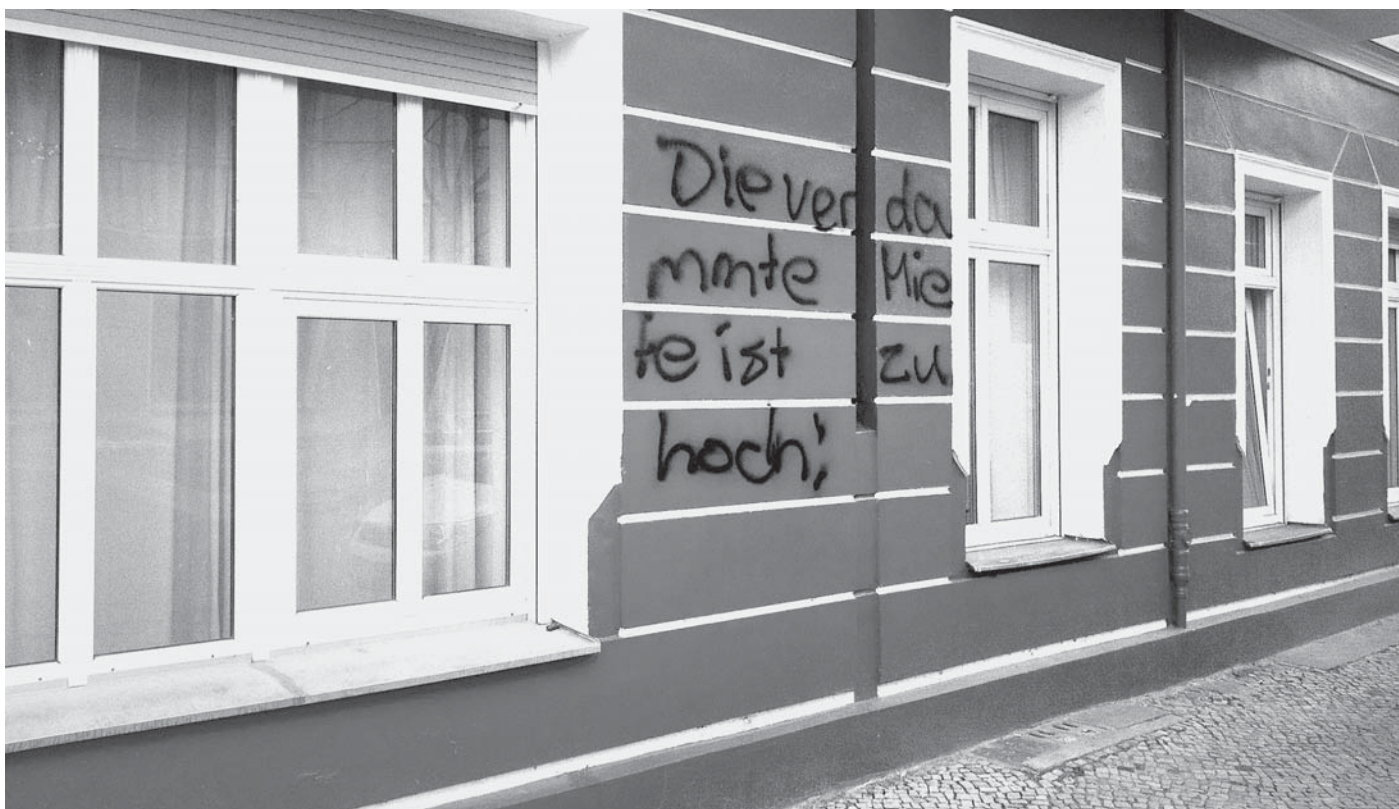 Die verda
mmte Mie
te ist zu
hoch!